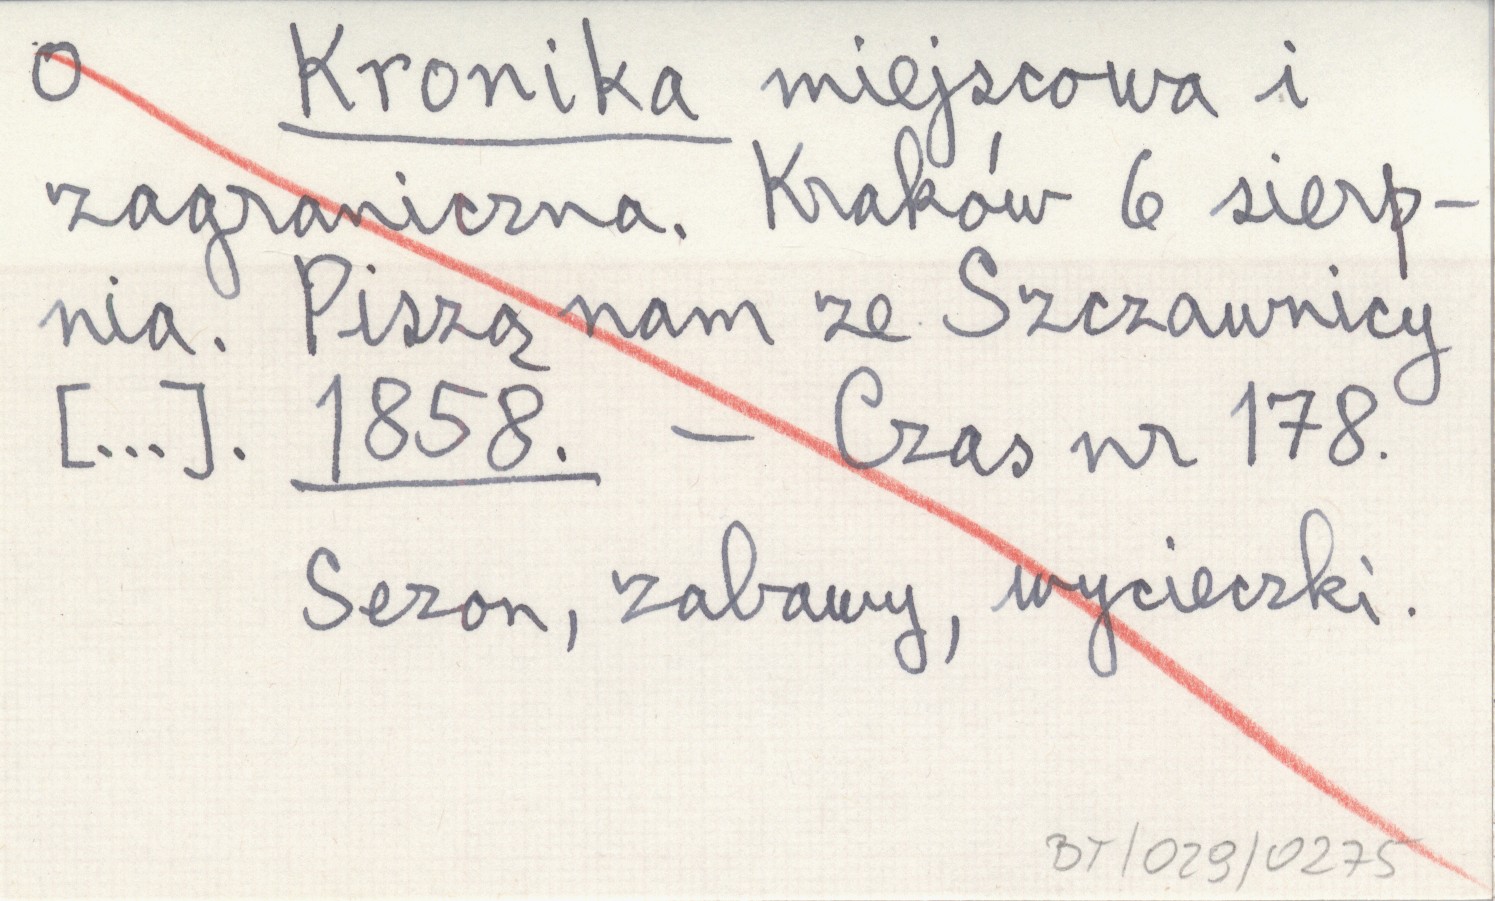 O Kronika miejscowa i
zagraniczna. Kraków 6 sierp-
nia. Piszą nam ze Szczawnicy
[...]. 1858. — Czas nr 178.
Sezon, zabawy, wycieczki.
BT/029/0275